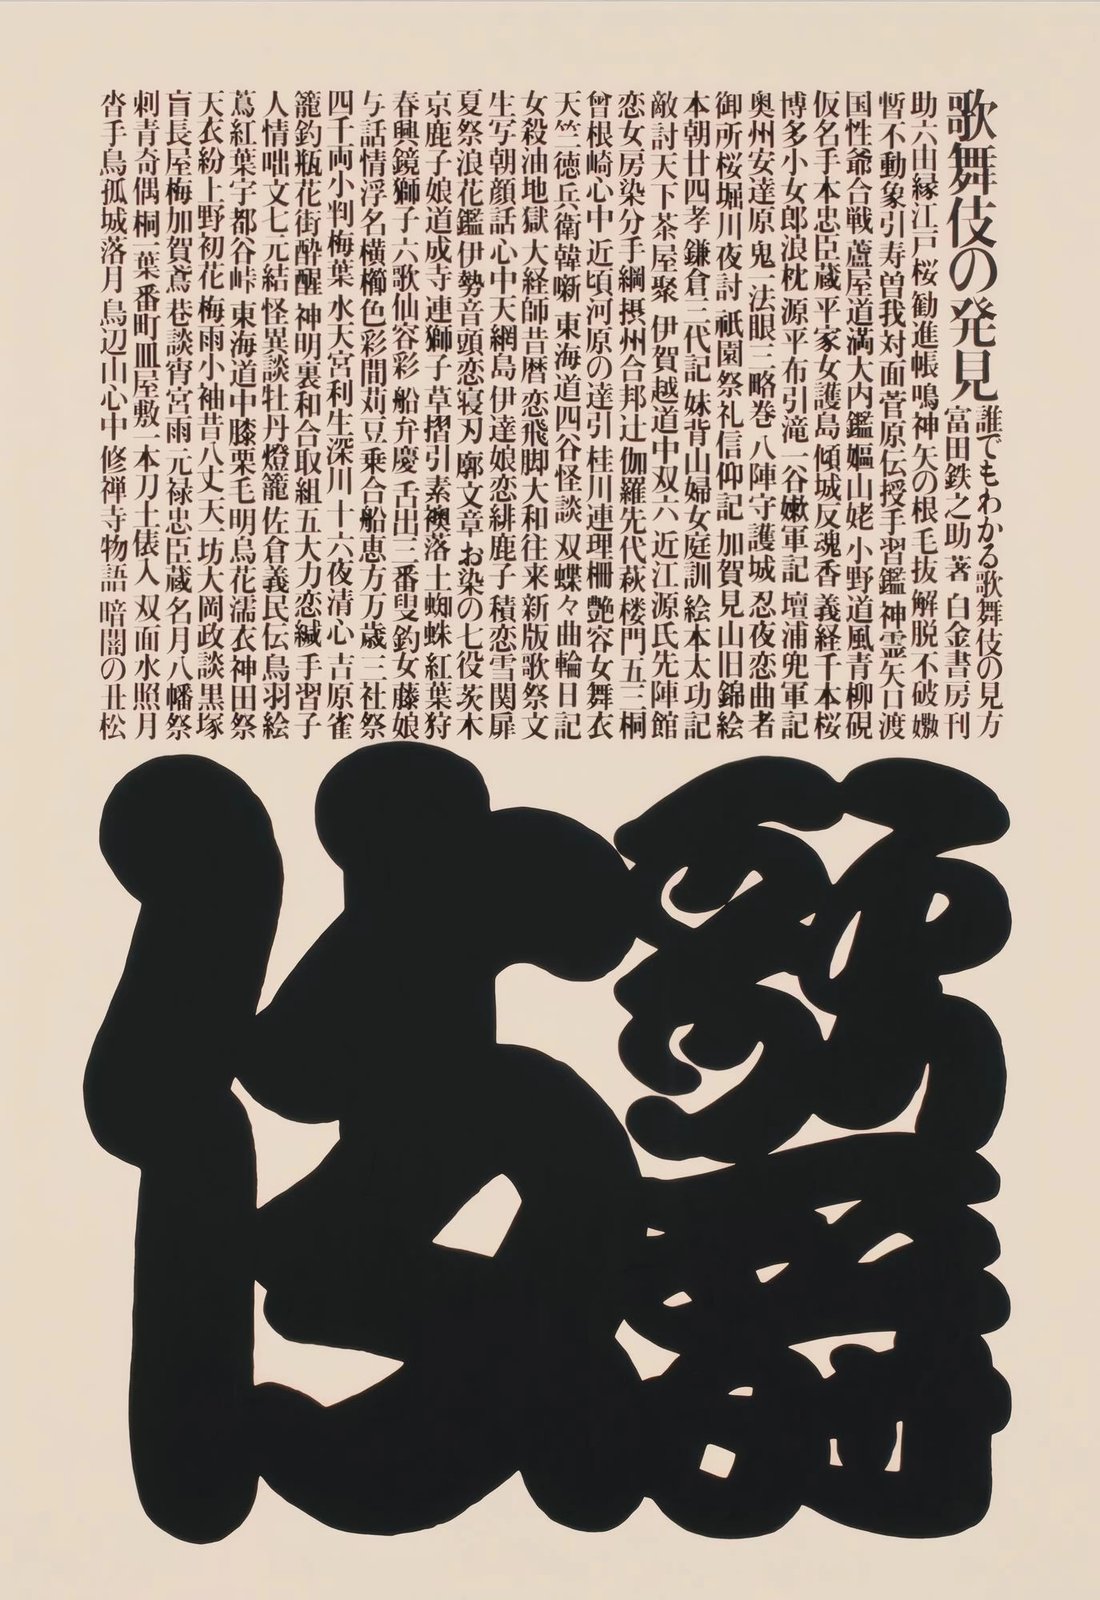 歌舞伎の発見
誰でもわかる歌舞伎の見方
富田鉄之助著 白金書房刊
助六由縁江戸桜 勧進帳 鳴神 矢の根 毛抜 解脱 不破 嫐
暫 不動 象引 寿曽我対面 菅原伝授手習鑑 神霊矢口渡
国性爺合戦 蘆屋道満大内鑑 嫗山姥 小野道風青柳硯
仮名手本忠臣蔵 平家女護島 傾城反魂香 義経千本桜
博多小女郎浪枕 源平布引滝 一谷嫩軍記 壇浦兜軍記
奥州安達原 鬼一法眼三略巻 八陣守護城 忍夜恋曲者
御所桜堀川夜討 祇園祭礼信仰記 加賀見山旧錦絵
本朝廿四孝 鎌倉三代記 妹背山婦女庭訓 絵本太功記
敵討天下茶屋聚 伊賀越道中双六 近江源氏先陣館
恋女房染分手綱 摂州合邦辻 伽羅先代萩 楼門五三桐
曾根崎心中 近頃河原の達引 桂川連理柵 艶容女舞衣
天竺徳兵衛韓噺 東海道四谷怪談 双蝶々曲輪日記
女殺油地獄 大経師昔暦 恋飛脚大和往来 新版歌祭文
生写朝顔話 心中天網島 伊達娘恋緋鹿子 積恋雪関扉
夏祭浪花鑑 伊勢音頭恋寝刃 廓文章 お染の七役 茨木
京鹿子娘道成寺 連獅子 草摺引 素襖落 土蜘蛛 紅葉狩
春興鏡獅子 六歌仙容彩 船弁慶 舌出三番叟 釣女 藤娘
与話情浮名横櫛 色彩間苅豆 乗合船恵方万歳 三社祭
四千両小判梅葉 水天宮利生深川 十六夜清心 吉原雀
籠釣瓶花街酔醒 神明裏和合取組 五大力恋緘 手習子
人情咄文七元結 怪異談牡丹燈籠 佐倉義民伝 鳥羽絵
蔦紅葉宇都谷峠 東海道中膝栗毛 明烏花濡衣 神田祭
天衣紛上野初花 梅雨小袖昔八丈 天一坊大岡政談 黒塚
盲長屋梅加賀鳶 巷談宵宮雨 元禄忠臣蔵 名月八幡祭
刺青奇偶 桐一葉 番町皿屋敷 一本刀土俵入 双面水照月
沓手鳥孤城落月 鳥辺山心中 修禅寺物語 暗闇の丑松
歌舞
伎